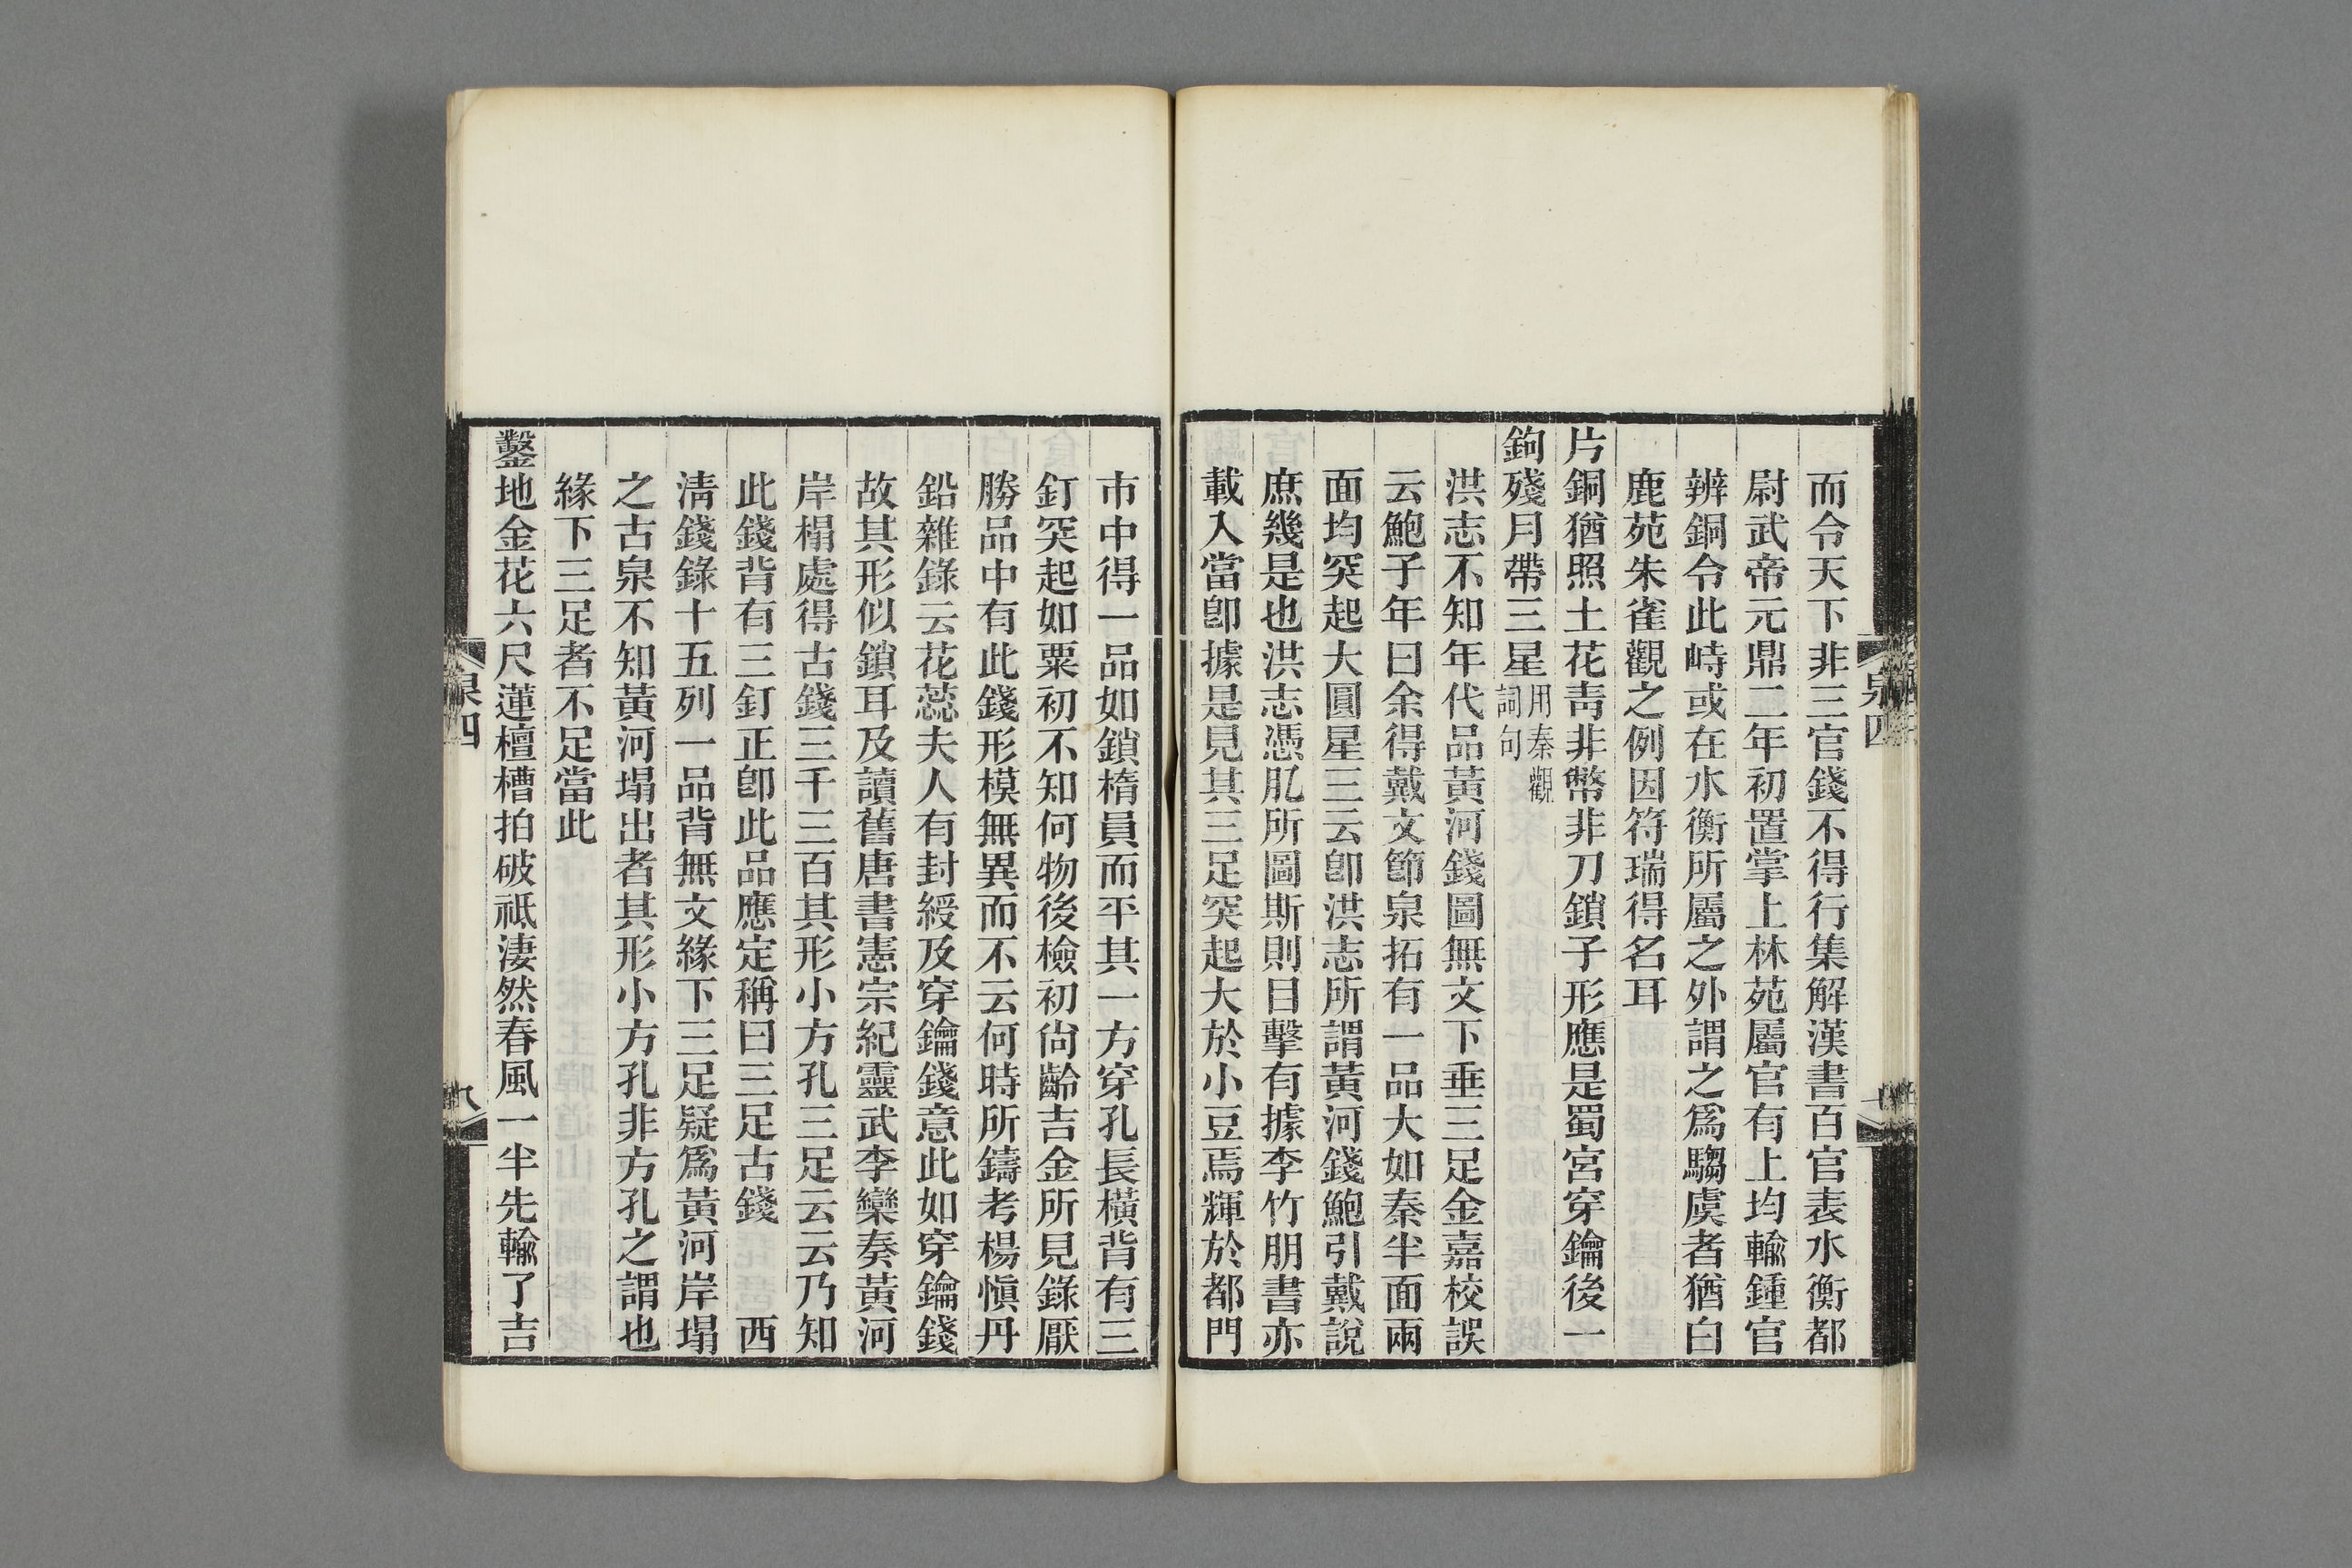 而令天下非三官錢不得行集解漢書百官表水衡都
尉武帝元鼎二年初置掌上林苑屬官有上均輸鍾官
辨銅令此時或在水衡所屬之外謂之爲騶虞者猶白
鹿苑朱雀觀之例因符瑞得名耳
片銅猶照土花靑非幣非刀鎖子形應是蜀宮穿鑰後一
鉤殘月帶三星用秦觀
詞句
洪志不知年代品黃河錢圖無文下垂三足金嘉校誤
云鮑子年曰余得戴文節泉拓有一品大如秦半面兩
面均突起大圓星三云卽洪志所謂黃河錢鮑引戴說
庶幾是也洪志憑肊所圖斯則目擊有據李竹朋書亦
載入當卽據是見其三足突起大於小豆焉輝於都門
泉四
市中得一品如鎖橢員而平其一方穿孔長橫背有三
釘突起如粟初不知何物後檢初尙齡吉金所見錄厭
勝品中有此錢形模無異而不云何時所鑄考楊愼丹
鉛雜錄云花蕊夫人有封綬及穿鑰錢意此如穿鑰錢
故其形似鎖耳及讀舊唐書憲宗紀靈武李欒奏黃河
岸榻處得古錢三千三百其形小方孔三足云云乃知
此錢背有三釘正卽此品應定稱曰三足古錢 西
淸錢錄十五列一品背無文緣下三足疑爲黃河岸塌
之古泉不知黃河塌出者其形小方孔非方孔之謂也
緣下三足者不足當此
鑿地金花六尺蓮檀槽拍破祗淒然春風一半先輸了吉
泉四
九